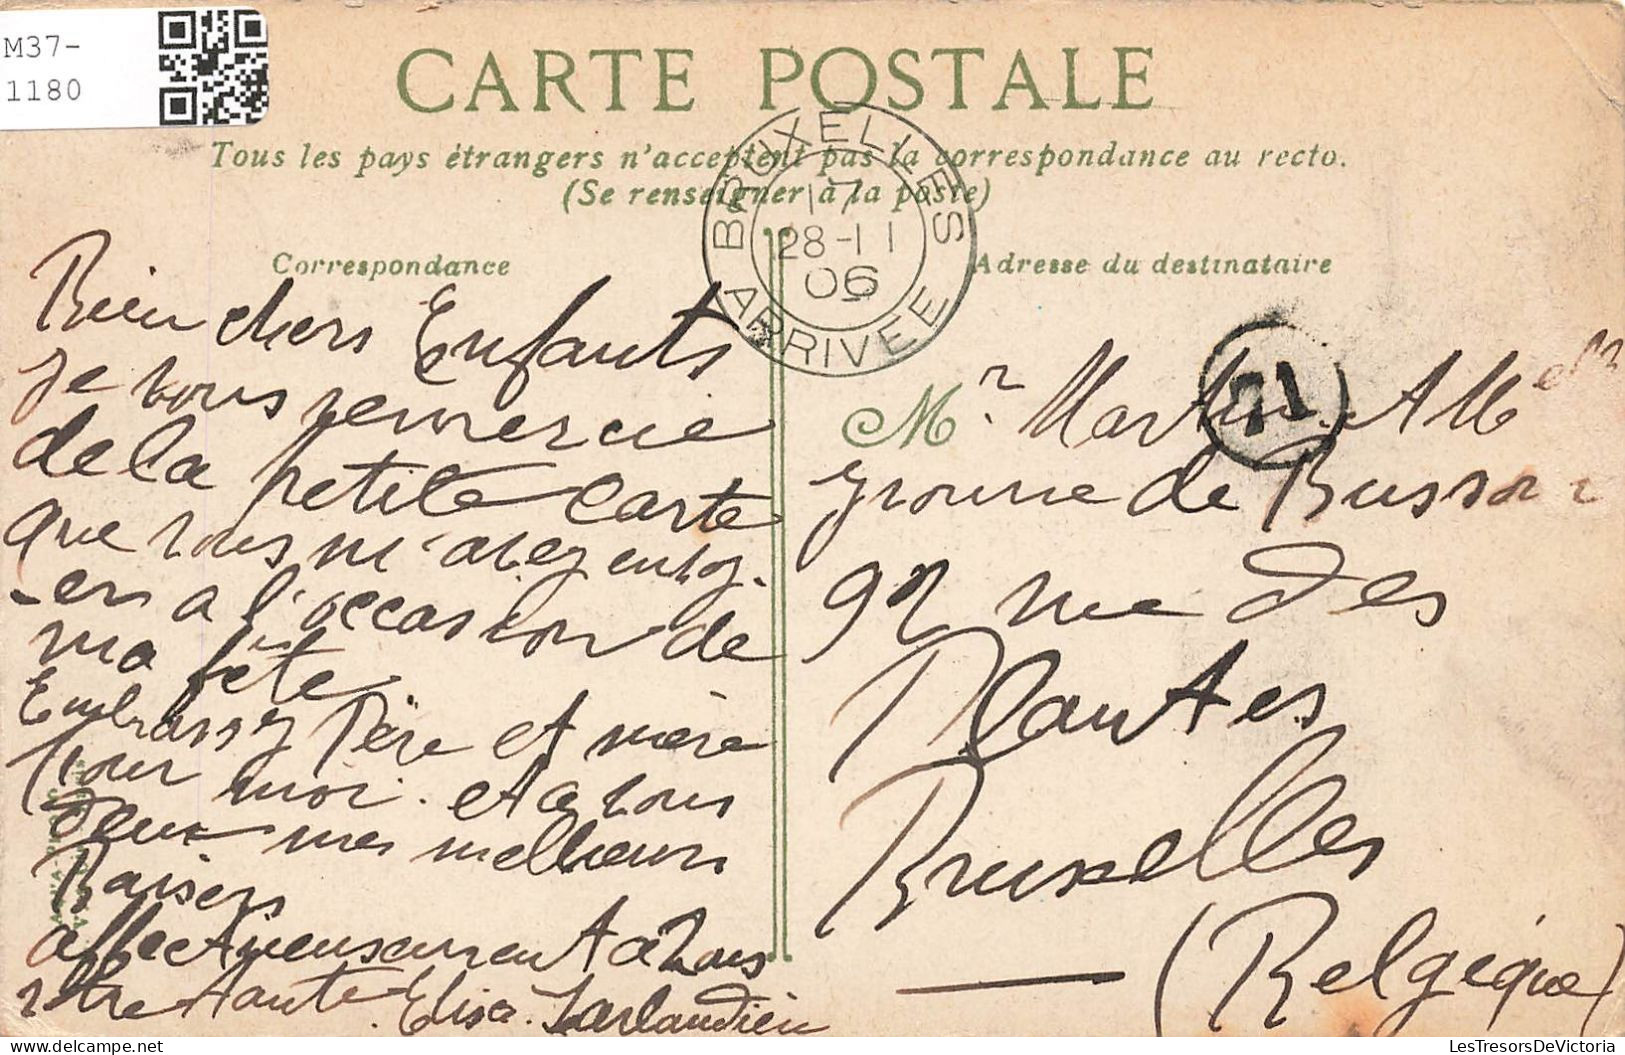 M37-
1180
CARTE POSTALE
Tous les pays étrangers n'acceptent pas la correspondance au recto.
(Se renseigner à la poste)
BRUXELLES
17
28-11
06
ARRIVEE
Correspondance
Bien chers Enfants
je vous remercie
de la petite carte
que vous m'avez envoy-
-er a l'occasion de
ma fête
Embrassez Père et mère
pour moi. et a vous
deux mes meilleurs
Baisers
affectueusement a vous
votre tante Elisa
Adresse du destinataire
71
Mr Martin et Melle
de
92 rue des
Plantes
Bruxelles
(Belgique)
LesTresorsDeVictoria